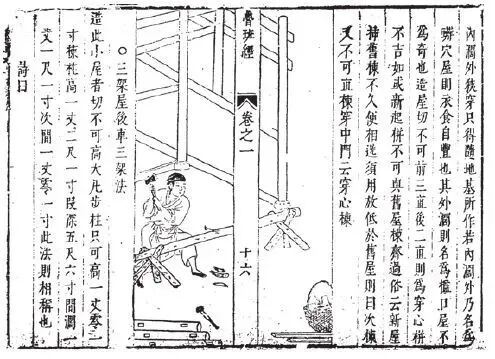 內濶外狹穿只得隨地基所作若內濶外乃名為
蠏穴屋則衣食自豐也其外濶則名為檻口屋不
為奇也造屋切不可前三直後二直則為穿心栟
不吉如或新起栟不可與舊屋棟齊過俗云新屋
插舊棟不久便相送須用放低於舊屋則曰次棟
又不可直棟穿中門云穿心棟
魯班經
卷之一
十六
○三架屋後車三架法
造此小屋者切不可高大凡步柱只可高一丈零一
寸棟柱高一丈二尺一寸段深五尺六寸間濶一
丈一尺一寸次間一丈零一寸此法則相稱也
詩曰